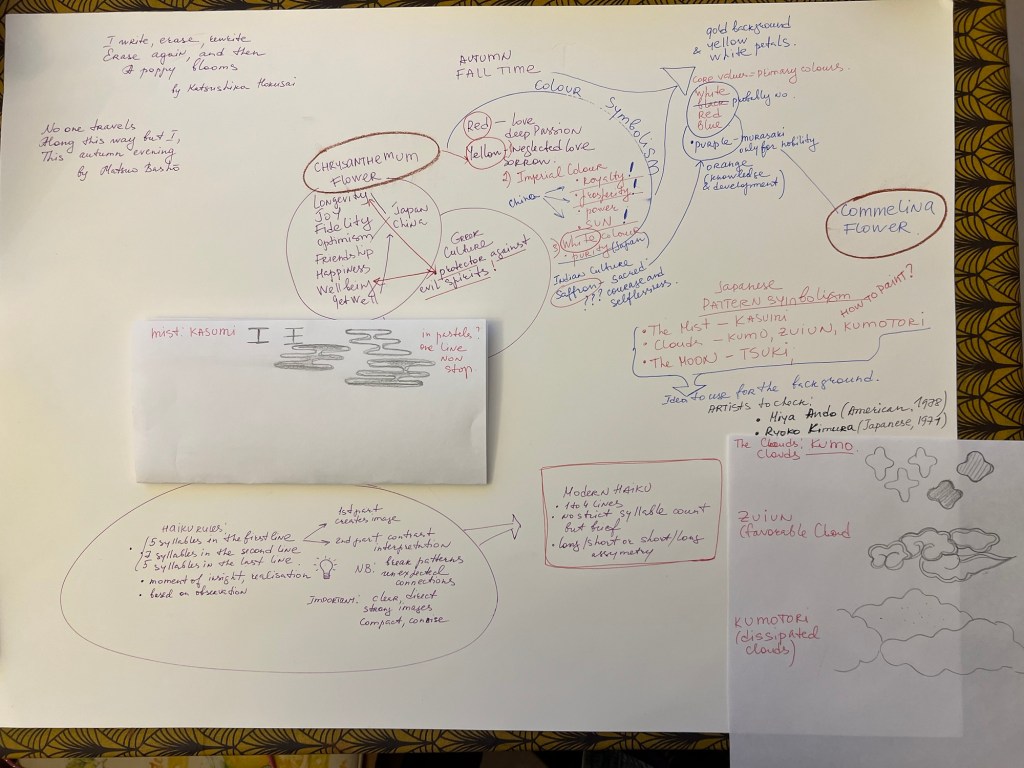 I write, erase, rewrite
Erase again, and then
A poppy blooms
by Katsushika Hokusai
No one travels
Along this way but I,
This autumn evening
by Matsuo Basho
AUTUMN
FALL TIME
COLOUR SYMBOLISM
CHRYSANTHEMUM
FLOWER
Red — love
deep passion
Yellow — 1) neglected love
sorrow.
2) Imperial Colour
China
• royalty!
• prosperity!
• power
• SUN!
3) White colour
• purity (Japan)
Indian Culture
Saffron: sacred:
??? courage and
selflessness.
Longevity
Joy
Fidelity
Optimism
Friendship
Happiness
Well being
get well
Japan
China
Greek
Culture
protector against
evil spirits!
gold background
& yellow
white petals.
core value = primary colours.
White
black probably no.
Red
Blue
• purple - murasaki
only for nobility
orange
(knowledge
& development)
COMMELINA
FLOWER
Japanese
PATTERN SYMBOLISM
HOW TO PAINT?
• The Mist — KASUMI
• Clouds — KUMO, ZUIUN, KUMOTORI
• The MOON — TSUKI
Idea to use for the background.
ARTISTS to check:
• Miya Ando (American, 1978)
• Ryoko Kimura (Japanese, 1971)
mist: KASUMI
in pastels?
one line
NON
stop.
HAIKU RULES:
5 syllables in the first line
7 syllables in the second line
5 syllables in the last line.
• moment of insight, realisation
• based on observation
1st part
creates image
2nd part contrast
interpretation
NB: break patterns
unexpected
connections
Important: clear, direct
strong images
compact, concise
MODERN HAIKU
• 1 to 4 lines
• no strict syllable count
but brief
• long/short or short/long
assymetry
The Clouds: KUMO
Clouds
ZUIUN
(favorable cloud
KUMOTORI
(dissipated
clouds)